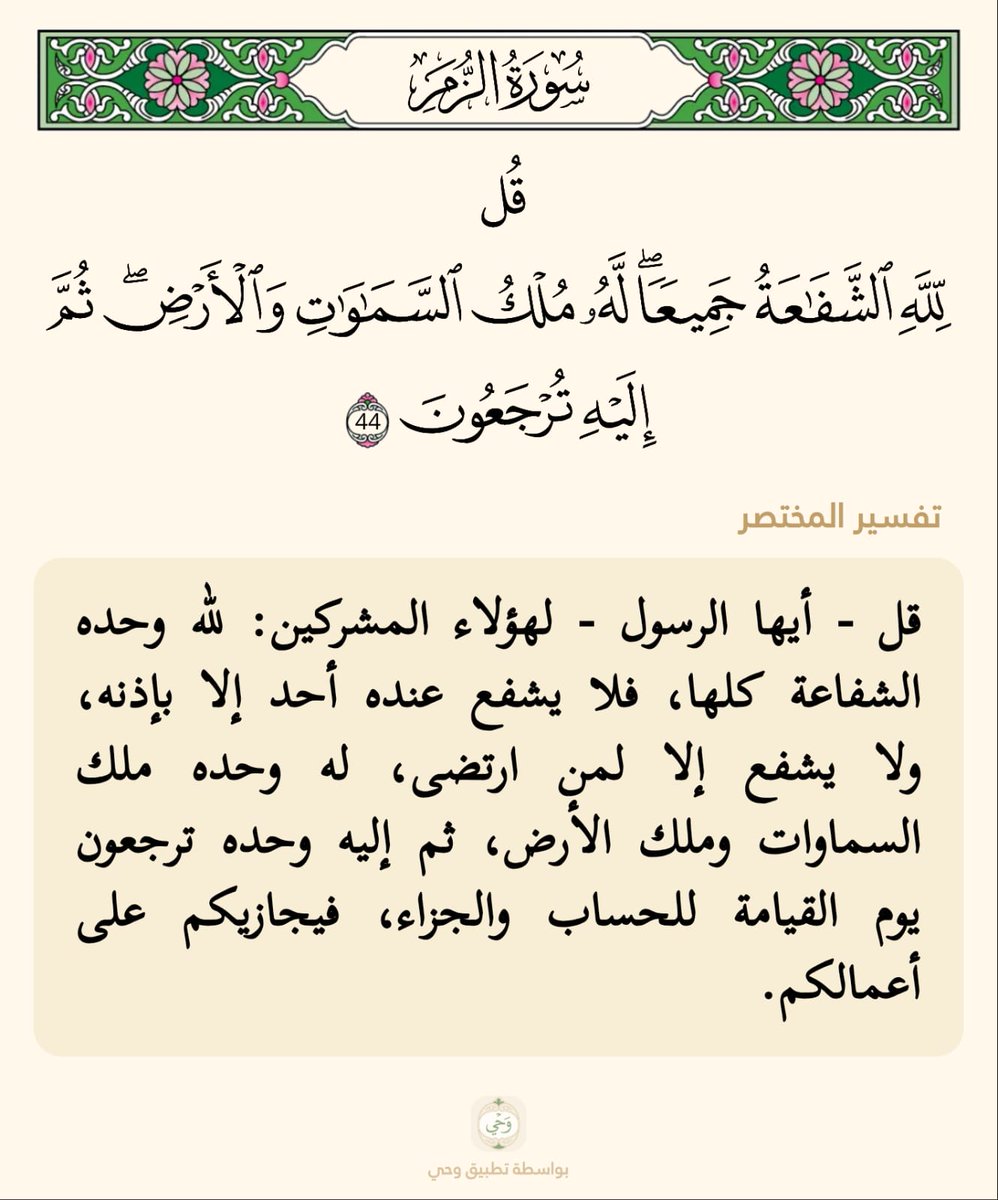 سُورَةُ الزُّمَرِ
قُل
لِّلَّهِ ٱلشَّفَٰعَةُ جَمِيعٗاۖ لَّهُۥ مُلۡكُ ٱلسَّمَٰوَٰتِ وَٱلۡأَرۡضِۖ ثُمَّ
إِلَيۡهِ تُرۡجَعُونَ 44
تفسير المختصر
قل - أيها الرسول - لهؤلاء المشركين: لله وحده
الشفاعة كلها، فلا يشفع عنده أحد إلا بإذنه،
ولا يشفع إلا لمن ارتضى، له وحده ملك
السماوات وملك الأرض، ثم إليه وحده ترجعون
يوم القيامة للحساب والجزاء، فيجازيكم على
أعمالكم.
وَحْي
بواسطة تطبيق وحي